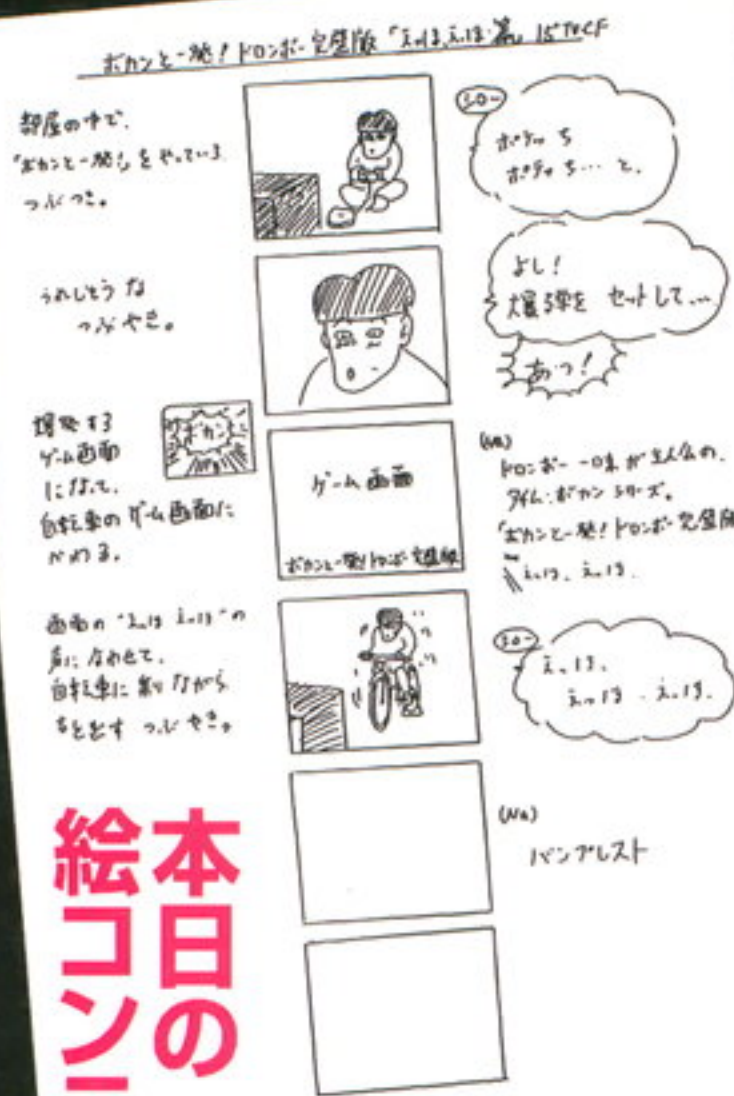 ボカンと一発!ドロンボー完璧版「えっほ、えっほ篇」15"TVCF
部屋の中で、
「ボカンと一発!」をやっている
つぶやき。
シロー
ポチっち
ポチっち…と、
うれしそうな
つぶやき。
よし!
爆弾を セットして…
あっ!
爆発する
ゲーム画面
になって、
自転車のゲーム画面に
かわる。
ボカン
ゲーム画面
ボカンと一発!ドロンボー完璧版
(Na)
ドロンボー一味が主人公の、
タイムボカンシリーズ。
「ボカンと一発!ドロンボー完璧版
えっほ、えっほ.
画面の“えっほ えっほ”の
声にあわせて、
自転車に乗りながら
つぶやき。
シロー
えっほ、
えっほ、えっほ.
(Na)
バンプレスト
本日の
絵コン